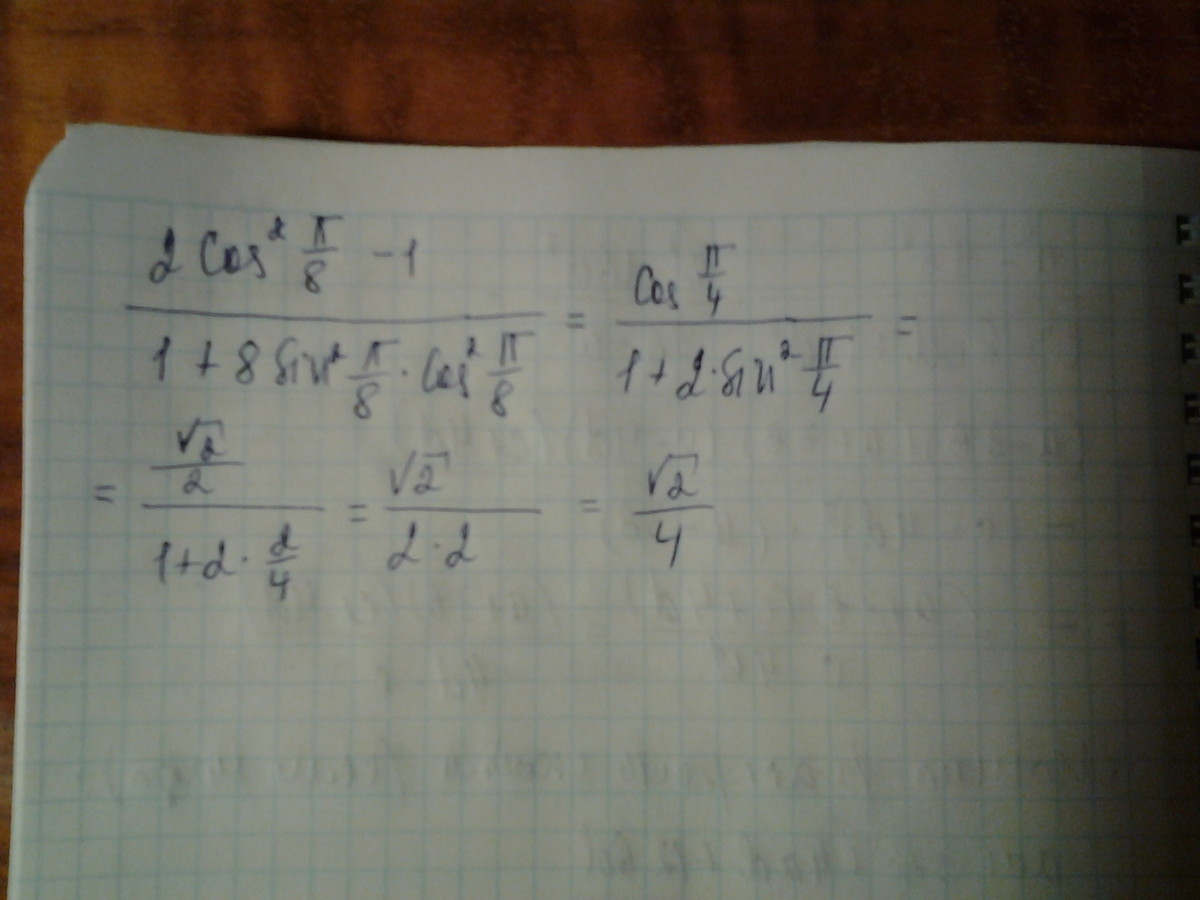 (2 cos² π/8 - 1)/(1 + 8 sin² π/8 · cos² π/8) = (cos π/4)/(1 + 2 · sin² π/4) =
= (√2/2)/(1 + 2 · 2/4) = √2/(2 · 2) = √2/4